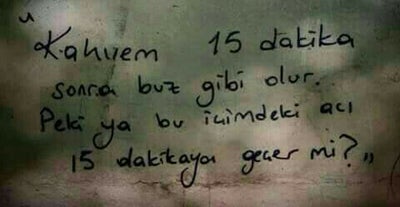 " Kahvem 15 dakika
sonra buz gibi olur.
Peki ya bu içimdeki acı
15 dakikaya geçer mi? "